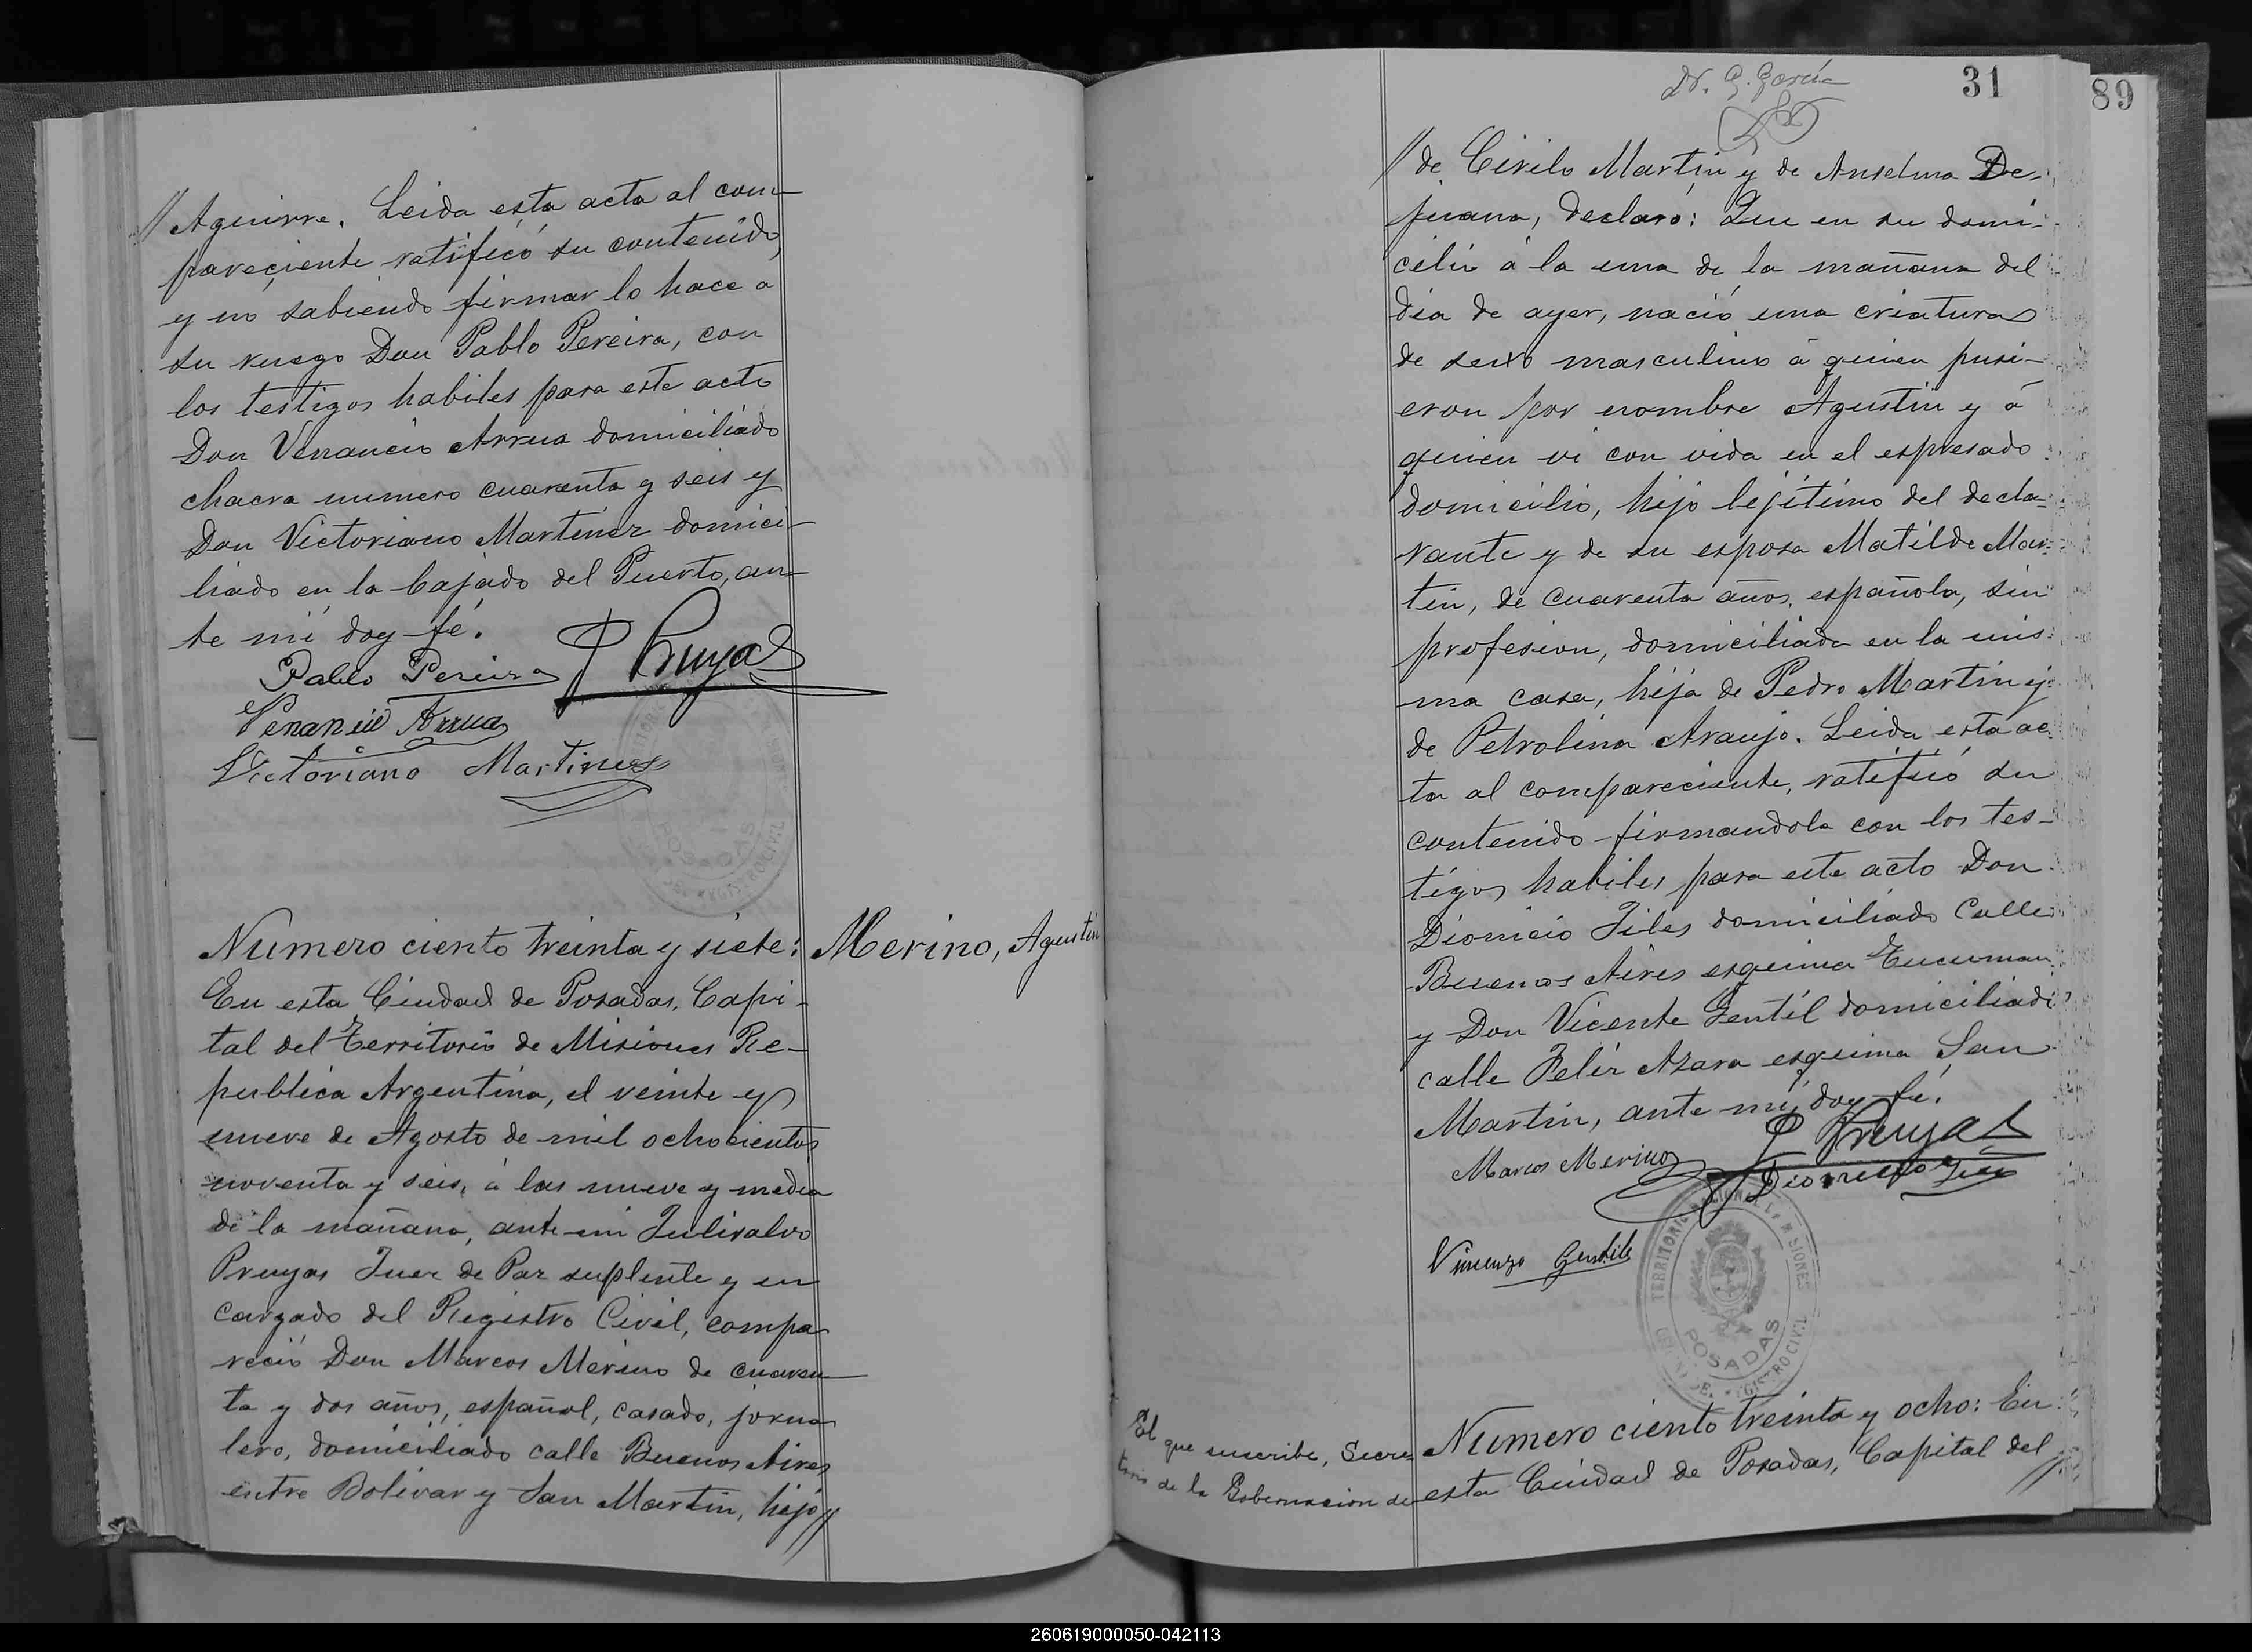 // Aguirre. Leida esta acta al com-
pareciente ratificó su contenido,
y no sabiendo firmar lo hace a
su ruego Don Pablo Pereira, con
los testigos habiles para este acto
Don Venancio Arrua domiciliado
chacra numero cuarenta y seis y
Don Victoriano Martinez domici-
liado en la bajada del Puerto, an-
te mi doy fé.
Pablo Pereira
P Pruyas
Venancio Arrua
Victoriano Martinez
POSADAS
Numero ciento treinta y siete:
Merino, Agustin
En esta Ciudad de Posadas, Capi-
tal del Territorio de Misiones Re-
publica Argentina, el veinte y
nueve de Agosto de mil ochocientos
noventa y seis, á las nueve y media
de la mañana, ante mi Julisalvo
Pruyas Juez de Paz suplente y en
cargado del Registro Civil, compa
reció Don Marcos Merino de cuaren
ta y dos años, español, casado, jorna
lero, domiciliado calle Buenos Aires
entre Bolivar y San Martin, hijo //
Dr. G. García
31
89
// de Cirilo Martin y de Anselma De-
juana, declaró: Que en su domi-
cilio á la una de la mañana del
dia de ayer, nació una criatura
de sexo masculino á quien pusi-
eron por nombre Agustin y á
quien vi con vida en el espresado
domicilio, hijo lejítimo del decla-
rante y de su esposa Matilde Mar-
tin, de cuarenta años, española, sin
profesion, domiciliada en la mis-
ma casa, hija de Pedro Martin y
de Petrolina Araujo. Leida esta ac
ta al compareciente, ratificó su
contenido firmandola con los tes-
tigos habiles para este acto Don
Dionicio Jiles domiciliado Calle
Buenos Aires esquina Tucuman
y Don Vicente Gentíl domiciliado
calle Felix Azara esquina San
Martin, ante mi, doy fé.
P Pruyas
Marcos Merino
Dionicio Jiles
Vincenzo Gentile
TERRITORIO NACIONAL DE MISIONES
POSADAS
REGISTRO CIVIL
Numero ciento treinta y ocho: En
esta Ciudad de Posadas, Capital del //
El que suscribe, Secre
tario de la Gobernacion de
260619000050-042113